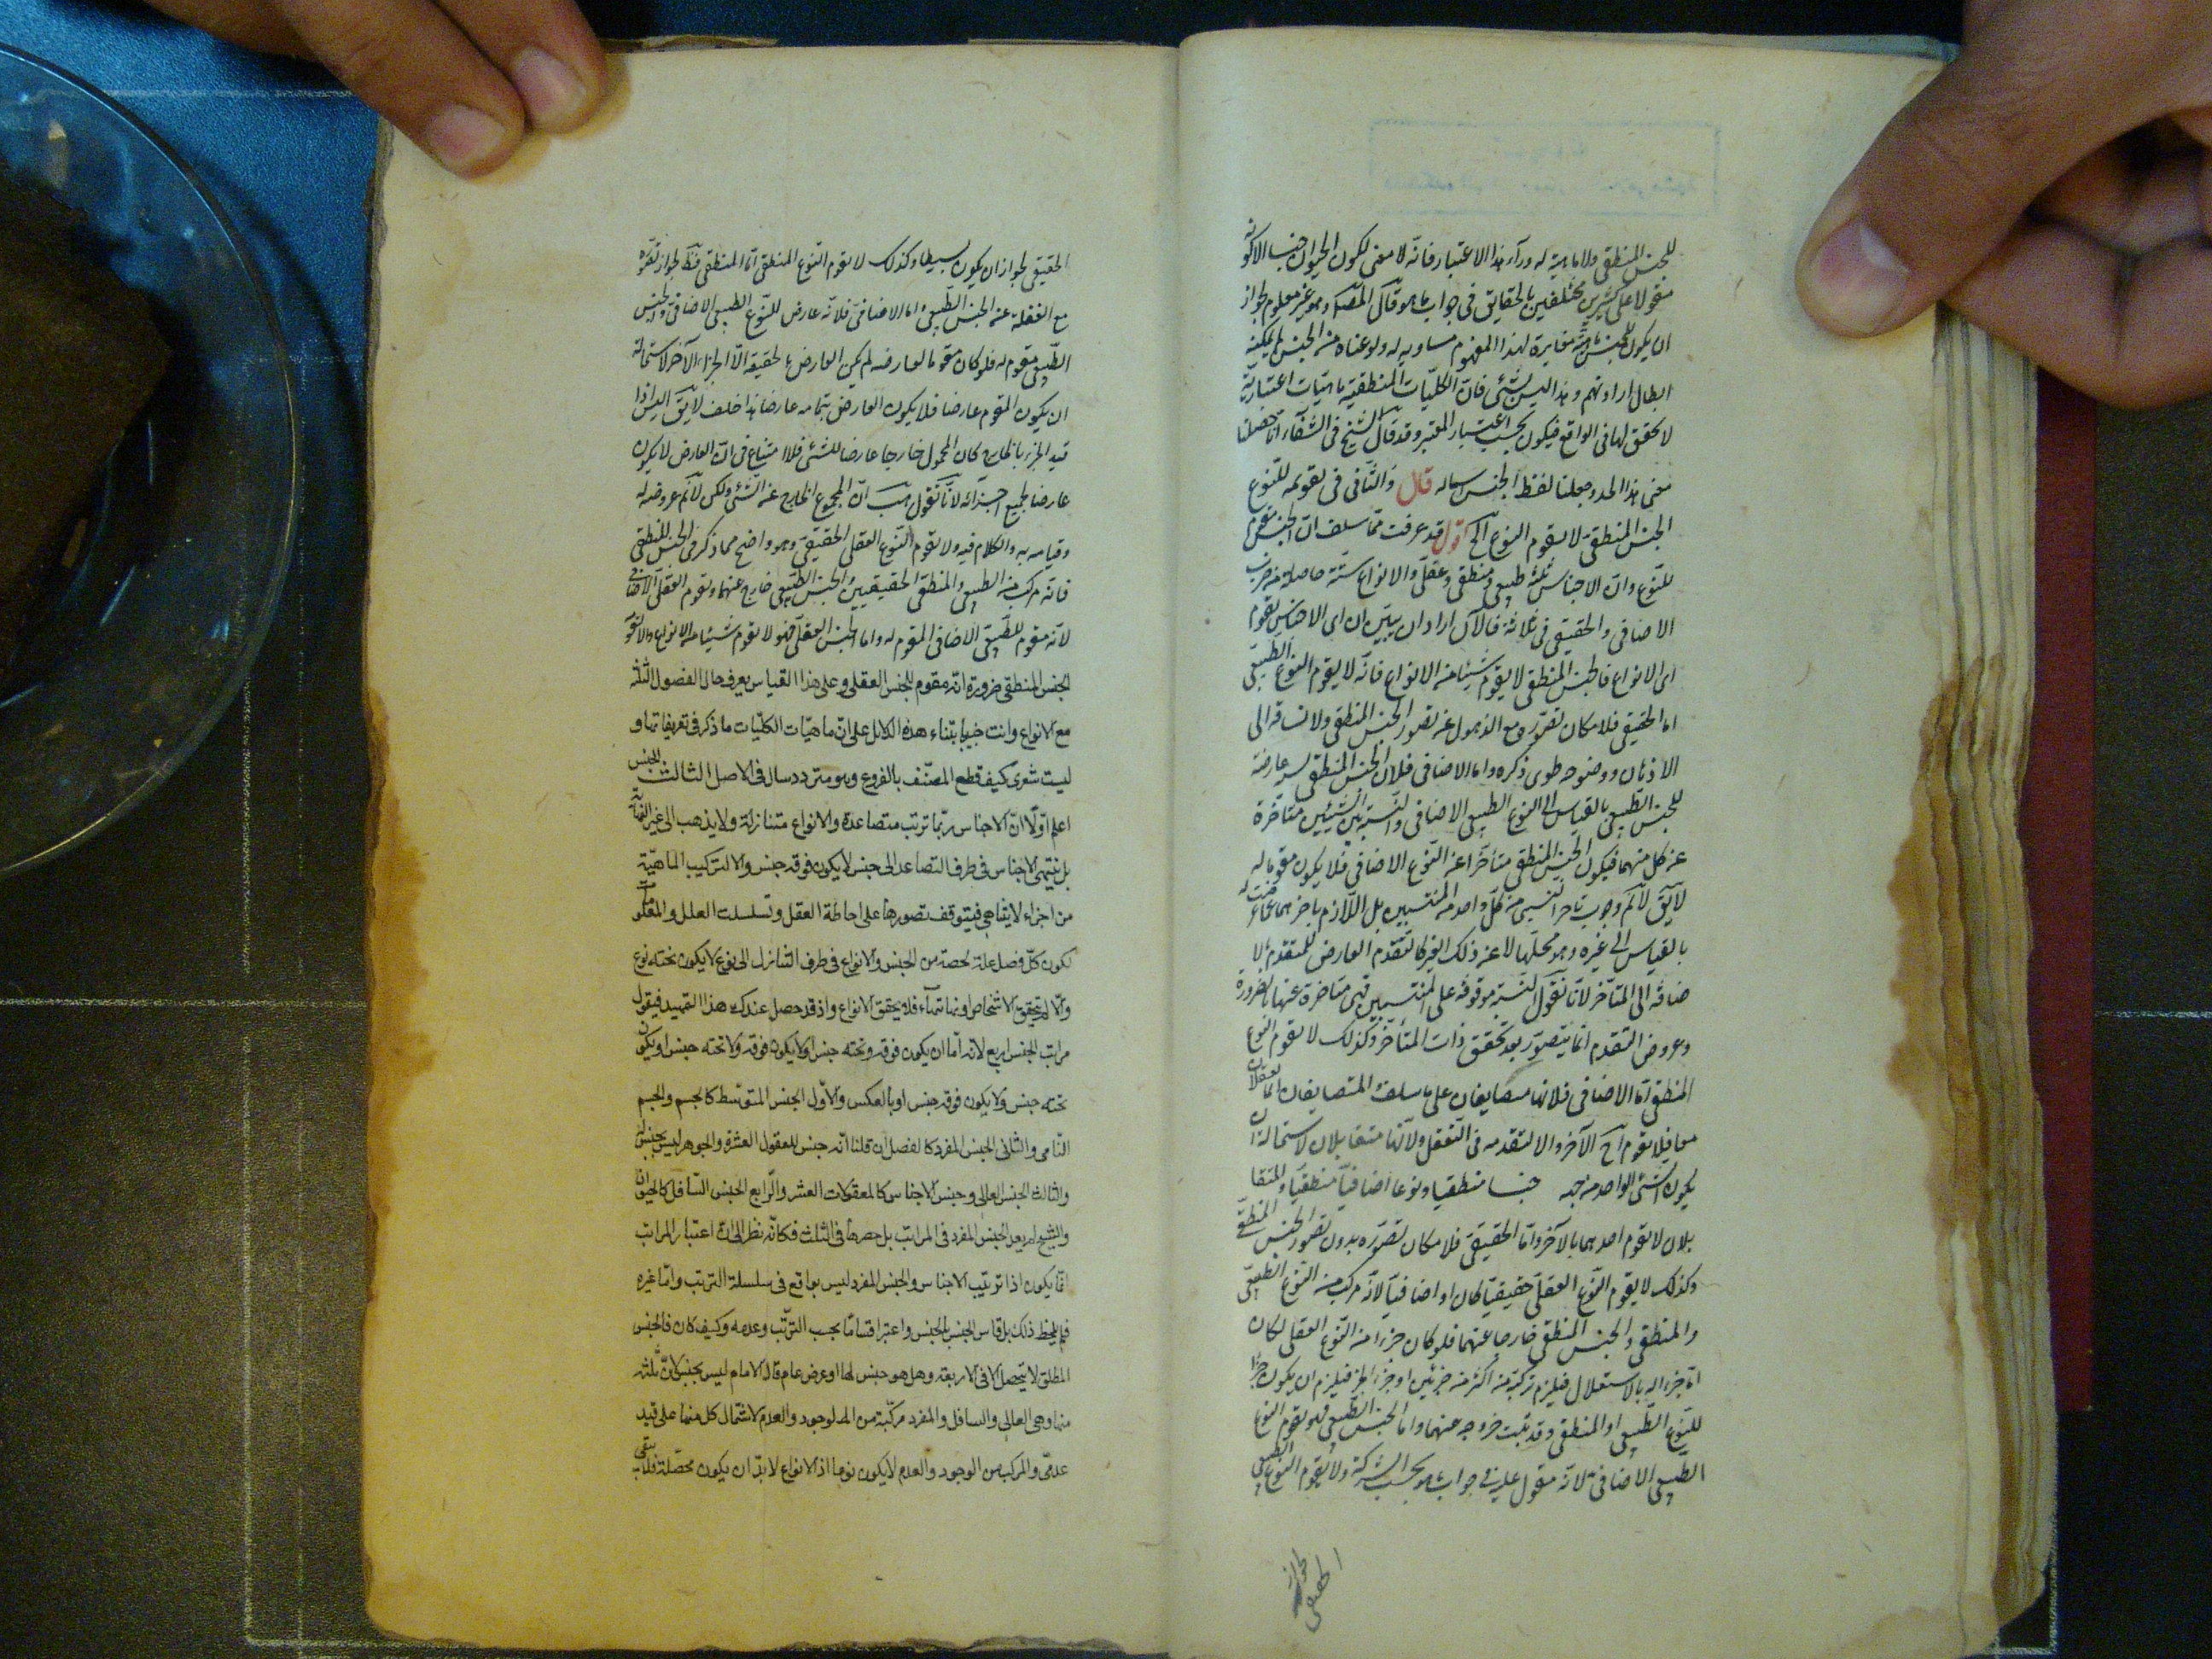 للجنس المنطقى ولا ماهية له وراء هذا الاعتبار فانه لا معنى لكون الحيوان جنسا الا كونه
مقولا على كثيرين مختلفين بالحقايق فى جواب ما هو قال المصنف وهو غير معلوم لجواز
ان يكون للجنس ماهية مغايرة لهذا المفهوم مساوية له ولو عناه من الجنس لم يمكنه
ابطال ارادتهم وهذا ليس بشئ فان الكليات المنطقية ماهيات اعتبارية
لا تحقق لها فى الواقع فيكون بحسب اعتبار المعتبر وقد قال الشيخ فى الشفاء انا حصلنا
معنى هذا الحد وجعلنا لفظ الجنس اسما له قال والثانى فى تقويمه للنوع
الجنس المنطقى لا يقوم النوع الخ اقول قد عرفت مما سلف ان الجنس يقوم
للنوع وان الاجناس ثلثة طبيعى ومنطقى وعقلى والانواع ستة حاصلة من ضرب
الاضافى والحقيقى فى ثلاثة فالآن اراد ان يبين ان اى الاجناس يقوم
اى الانواع فالجنس المنطقى لا يقوم شيئا من الانواع فانه لا يقوم النوع الطبيعى
اما الحقيقى فلامكان تصوره مع الذهول عن تصور الجنس المنطقى ولانسياقه الى
الاذهان ووضوحه طوى ذكره واما الاضافى فلان الجنس المنطقى نسبة عارضة
للجنس الطبيعى بالقياس الى النوع الطبيعى الاضافى والنسبة بين الشيئين متأخرة
عن كل منهما فيكون الجنس المنطقى متأخرا عن النوع الاضافى فلا يكون مقوما له
لا يقال لا نم وجوب تاخر النسبى من كل واحد من المنتسبين بل اللازم تاخرهما عما عرضت له
بالقياس الى غيره وهو محلها لا عن ذلك الغير كالتقدم العارض للمتقدم بالا
ضافة الى المتأخر لانا نقول النسبة موقوفة على المنتسبين فهى متاخرة عنهما بالضرورة
وعروض التقدم انما يتصور بعد تحقق ذات المتأخر وكذلك لا يقوم النوع
المنطقى اما الاضافى فلانهما متضايفان على ما سلف المتضايفان انما يعقلان
معا فلا يقوم احدهما الآخر والا لتقدمه فى التعقل ولانهما متقابلان لاستحالة ان
يكون الشئ الواحد من جهة جنسا منطقيا ونوعا اضافيا منطقيا والمتقا
بلان لا تقوم احدهما بالآخر واما الحقيقى فلامكان تصوره بدون تصور الجنس المنطقى
وكذلك لا يقوم النوع العقلى حقيقيا كان او اضافيا لانه مركب من النوع الطبيعى
والمنطقى والجنس المنطقى خارج عنهما فلو كان جزءا من النوع العقلى لكان
اما جزءا له بالاستقلال فيلزم تركبه من اكثر من جزئين او جزء الجزء فيلزم ان يكون جزءا
للنوع الطبيعى او المنطقى وقد ثبت خروجه عنهما واما الجنس الطبيعى فهو يقوم النوع
الطبيعى الاضافى لانه مقول عليه فى جواب ما هو بحسب الشركة ولا يقوم النوع الطبيعى
الحقيقى لجواز
الحقيقى لجواز ان يكون بسيطا وكذلك لا يقوم النوع المنطقى اما المنطقى فقط لجواز تصوره
مع الغفلة عن الجنس الطبيعى اما الاضافى فلانه عارض للنوع الطبيعى الاضافى والجنس
الطبيعى مقوم له فلو كان مقوما لعارضه لم يكن العارض بالحقيقة الا الجزء الآخر لاستحالة
ان يكون المقوم عارضا فلا يكون العارض بتمامه عارضا هذا خلف لا يقال اليس اذا
قيد الجزء بالخارج كان المجموع خارجا عارضا للشئ فلا امتناع فى ان العارض لا يكون
عارضا بجميع اجزائه لانا نقول هب ان المجموع الخارج عن الشئ ولكن لا نم عروضه له
وقيامه به والكلام فيه ولا يقوم النوع العقلى الحقيقى وهو واضح مما ذكر فى الجنس المنطقى
فانه مركب من الطبيعى والمنطقى الحقيقيين والجنس الطبيعى خارج عنهما ويقوم العقلى الاضافى
لانه مقوم للطبيعى الاضافى المقوم له واما الجنس العقلى فهو لا يقوم شيئا من الانواع والا لقوم
الجنس المنطقى ضرورة انه مقوم للجنس العقلى وعلى هذا القياس يعرف حال الفصول الثلثة
مع الانواع وانت خبير بابتناء هذه الدلائل على ان ماهيات الكليات ما ذكر فى تعريفاتها و
ليت شعرى كيف قطع المصنف بالفروع وهو متردد سال فى الاصل الثالث الجنس
اعلم اولا ان الاجناس ربما ترتب متصاعدة والانواع متنازلة ولا يذهب الى غير النهاية
بل ينتهى الاجناس فى طرف التصاعد الى جنس لا يكون فوقه جنس والا لتركيب الماهية
من اجزاء لا يتناهى فيتوقف تصورها على احاطة العقل وتسلسلت العلل والمعلولات
لكون كل فصل علة لحصة من الجنس والانواع فى طرف التنازل الى نوع لا يكون تحته نوع
والا لم يتحقق الاشخاص اذ بها نهايتها فلا يتحقق الانواع واذ قد حصل عندك هذا التمهيد فيقول
مراتب الجنس اربع لانه اما ان يكون فوقه وتحته جنس او لا يكون فوقه ولا تحته جنس او يكون
تحته جنس ولا يكون فوقه جنس او بالعكس والاول الجنس المتوسط كالجسم والجسم
النامى والثانى الجنس المفرد كالفصل ان قلنا انه جنس للعقول العشرة والجوهر ليس بجنس له
والثالث الجنس العالى وجنس الاجناس كالمعقولات العشر والرابع الجنس السافل كالحيوان
والشيخ لم يعد الجنس المفرد فى المراتب بل حصرها فى الثلث فكانه نظر الى ان اعتبار المراتب
انما يكون اذا ترتب الاجناس والجنس المفرد ليس بواقع فى سلسلة الترتب واما غيره
فلم يلاحظ ذلك بل قاس الجنس بالجنس واعتبر اقساما بحسب الترتب وعدمه وكيف كان فالجنس
المطلق لا يتحصل الا فى الاربعة وهل هو جنس لها او عرض عام قال الامام ليس بجنس لان ثلثة
منها وهى العالى والسافل والمفرد مركبة من الوجود والعدم لاشتمال كل منها على قيد
عدمى والمركب من الوجود والعدم لا يكون نوعا اذ الانواع لا بد ان يكون محصلة فلا يبقى